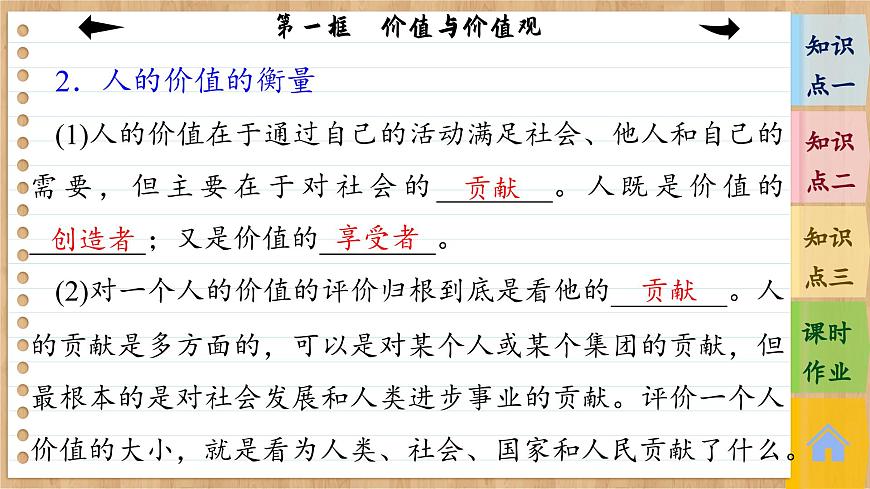 第一框 价值与价值观
2．人的价值的衡量
(1)人的价值在于通过自己的活动满足社会、他人和自己的
需要，但主要在于对社会的 贡献 。人既是价值的
创造者 ；又是价值的 享受者 。
(2)对一个人的价值的评价归根到底是看他的 贡献 。人
的贡献是多方面的，可以是对某个人或某个集团的贡献，但
最根本的是对社会发展和人类进步事业的贡献。评价一个人
价值的大小，就是看为人类、社会、国家和人民贡献了什么。
知识
点一
知识
点二
知识
点三
课时
作业